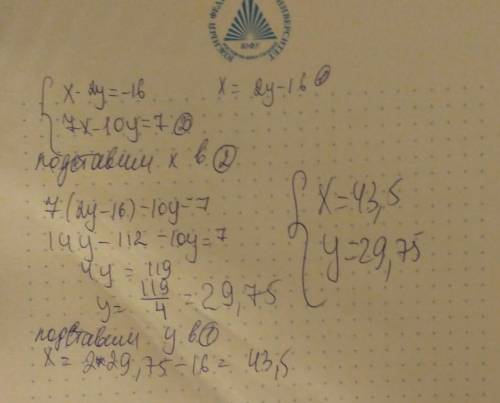 ЮЖНЫЙ ФЕДЕ УНИВЕРСИТЕТ
ЮФУ
{ x - 2y = -16    x = 2y - 16 ①
7x - 10y = 7 ②
подставим x в ②
7·(2y-16) - 10y = 7
14y - 112 - 10y = 7
4y = 119
y = 119/4 = 29,75
{ x = 43,5
y = 29,75
подставим y в ①
x = 2*29,75 - 16 = 43,5